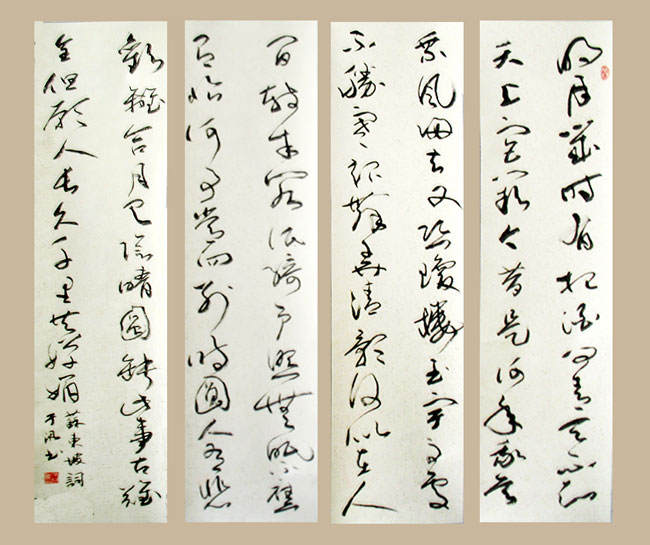 明月幾時有把酒問青天不知
天上宮闕今昔是何年我欲
乘風歸去又恐瓊樓玉宇高處
不勝寒起舞弄清影何似在人
間轉朱閣低綺戶照無眠不應
有恨何事常向別時圓人有悲
歡離合月有陰晴圓缺此事古難
全但願人長久千里共嬋娟
蘇東坡詞